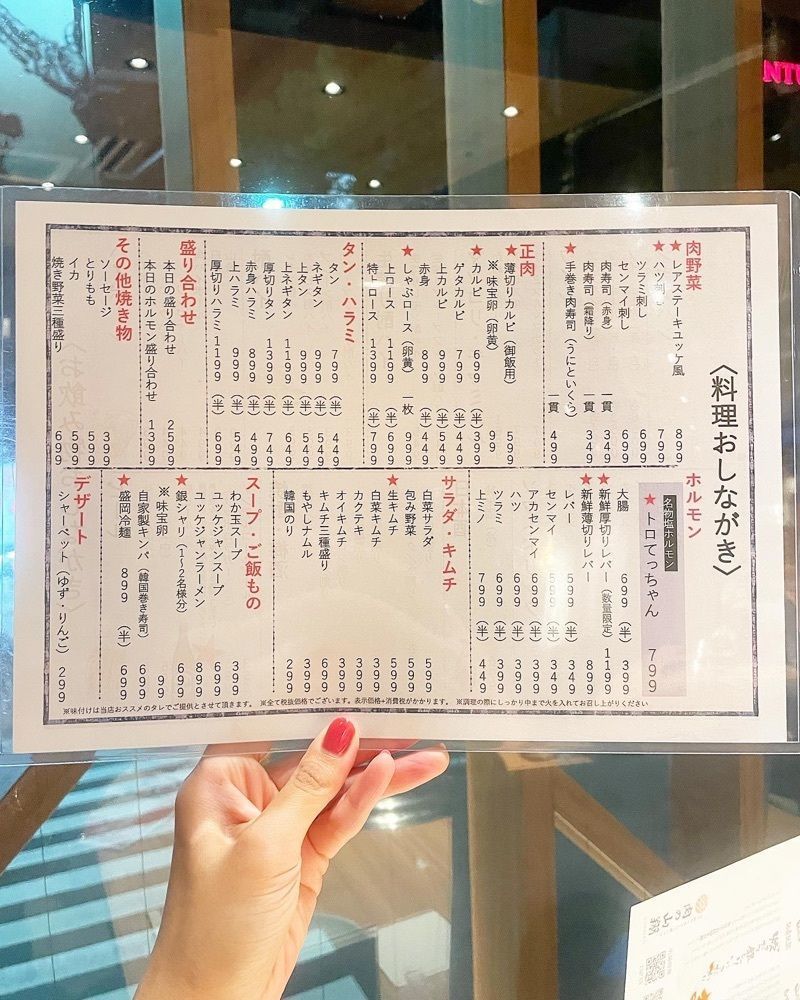 〈料理おしながき〉
肉野菜
★レアステーキユッケ風 899
★ハツ刺し 799
ツラミ刺し 699
センマイ刺し 699
肉寿司（赤身） 一貫 349
肉寿司（霜降り） 一貫 349
★手巻き肉寿司（うにといくら） 一貫 499
正肉
★薄切りカルビ（御飯用） 599
※味宝卵（卵黄） 99
★カルビ 699 （半）399
ゲタカルビ 799 （半）449
上カルビ 999 （半）549
赤身 899 （半）449
★しゃぶロース（卵黄） 一枚 999
上ロース 1199 （半）699
特上ロース 1399 （半）799
タン・ハラミ
タン 799 （半）449
ネギタン 999 （半）549
上タン 999 （半）549
上ネギタン 1199 （半）649
厚切りタン 1399 （半）749
赤身ハラミ 899 （半）499
上ハラミ 999 （半）549
厚切りハラミ 1199 （半）699
盛り合わせ
本日の盛り合わせ 2599
本日のホルモン盛り合わせ 1399
その他焼き物
ソーセージ 399
とりもも 599
イカ 599
焼き野菜三種盛り 699
ホルモン
名物塩ホルモン
★トロてっちゃん 799
大腸 699 （半）399
★新鮮厚切りレバー（数量限定） 1199
★新鮮薄切りレバー 899
レバー 599 （半）349
センマイ 599 （半）349
アカセンマイ 699 （半）399
ハツ 699 （半）399
ツラミ 699 （半）399
上ミノ 799 （半）449
サラダ・キムチ
白菜サラダ 599
包み野菜 599
★生キムチ 599
白菜キムチ 399
カクテキ 399
オイキムチ 399
キムチ三種盛り 699
もやしナムル 399
韓国のり 299
スープ・ご飯もの
わか玉スープ 399
ユッケジャンスープ 699
ユッケジャンラーメン 899
★銀シャリ（1〜2名様分） 699
※味宝卵 99
自家製キンパ（韓国巻き寿司） 699
★盛岡冷麺 899 （半）699
デザート
シャーベット（ゆず・りんご） 299
※味付けは当店おススメのタレでご提供とさせて頂きます。 ※全て税抜価格でございます。表示価格+消費税がかかります。 ※調理の際にしっかり中まで火を入れてお召し上がりください
NTU
肉の山翔